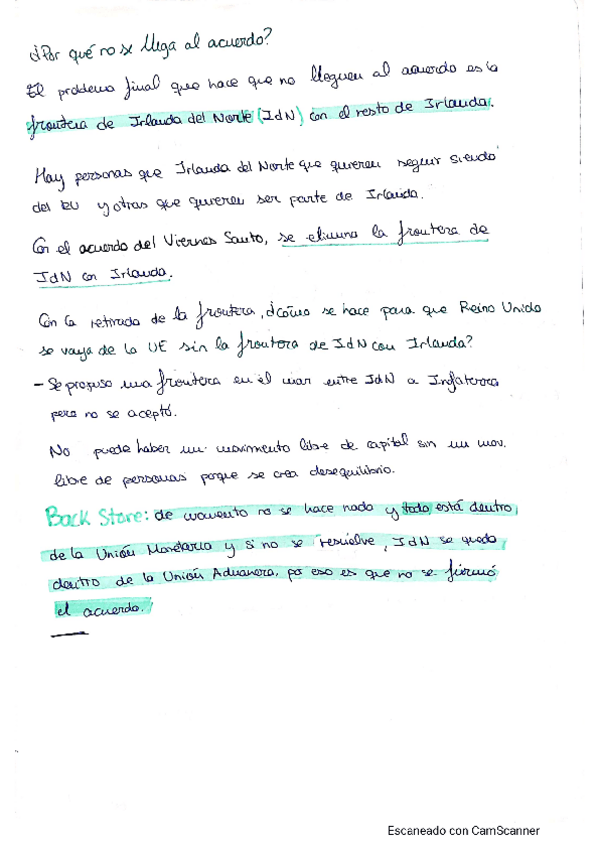 ¿Por qué no se llega al acuerdo?
El problema final que hace que no lleguen al acuerdo es la
frontera de Irlanda del Norte (IdN) con el resto de Irlanda.
Hay personas que Irlanda del Norte que quieren seguir siendo
del EU y otras que quieren ser parte de Irlanda.
Con el acuerdo del Viernes Santo, se elimina la frontera de
IdN con Irlanda.
Con la retirada de la frontera, ¿cómo se hace para que Reino Unido
se vaya de la UE sin la frontera de IdN con Irlanda?
- Se propuso una frontera en el mar entre IdN a Inglaterra
pero no se aceptó.
No puede haber un movimiento libre de capital sin un mov.
libre de personas porque se crea desequilibrio.
Back Store: de momento no se hace nada y todo está dentro
de la Unión Monetaria y si no se resuelve, IdN se queda
dentro de la Unión Aduanera, por eso es que no se firmó
el acuerdo.
Escaneado con CamScanner